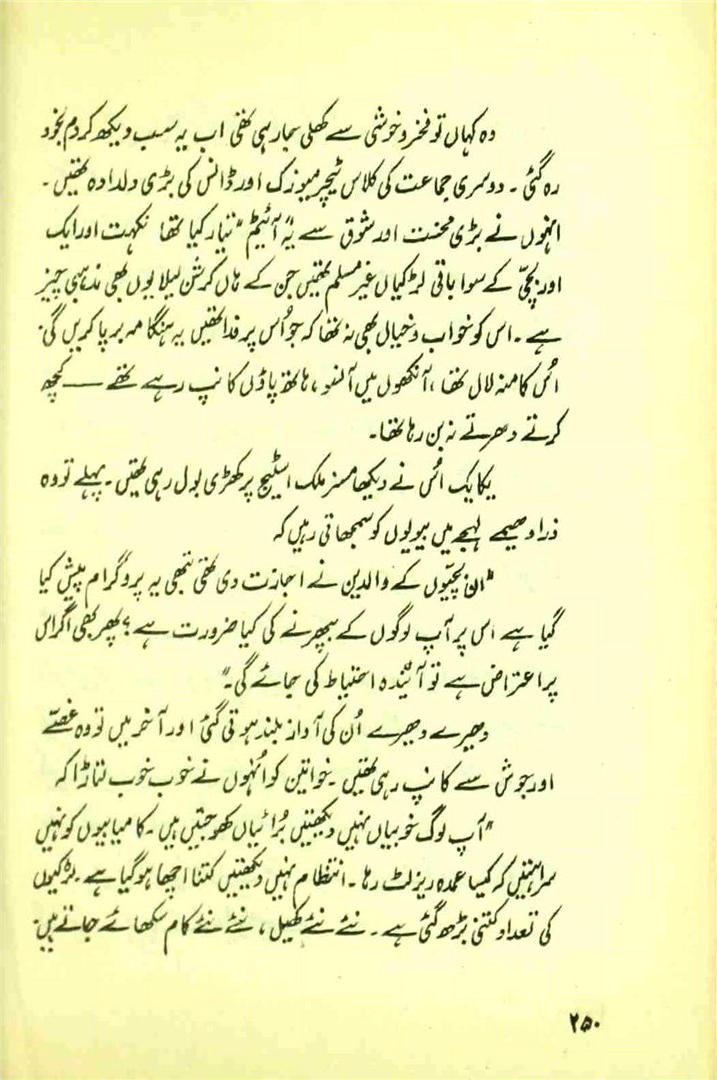 وہ کہاں تو فخر و خوشی سے کھلی جا رہی تھی اب یہ سب دیکھ کر دم بخود
رہ گئی ۔ دوسری جماعت کی کلاس ٹیچر میوزک اور ڈانس کی بڑی دلدادہ تھیں ۔
انہوں نے بڑی محنت اور شوق سے یہ "آئیٹم" تیار کیا تھا نکہت اور ایک
اور بچی کے سوا باقی لڑکیاں غیر مسلم تھیں جن کے ہاں کرشن لیلا یوں بھی مذہبی چیز
ہے ۔ اس کو خواب و خیال بھی نہ تھا کہ جو اُس پر فدا تھیں یہ ہنگامہ برپا کریں گی ۔
اُس کا منہ لال تھا ، آنکھوں میں آنسو ، ہاتھ پاؤں کانپ رہے تھے —— کچھ
کرتے دھرتے نہ بن رہا تھا ۔
یکایک اُس نے دیکھا مسز ملک اسٹیج پر کھڑی بول رہی تھیں ۔ پہلے تو وہ
ذرا دھیمے لہجے میں بیویوں کو سمجھاتی رہیں کہ
"ان بچیّوں کے والدین نے اجازت دی تھی تبھی یہ پروگرام پیش کیا
گیا ہے اس پر آپ لوگوں کے بپھرنے کی کیا ضرورت ہے ؟ پھر بھی اگر اس
پر اعتراض ہے تو آئیندہ احتیاط کی جائے گی ۔"
دھیرے دھیرے اُن کی آواز بلند ہوتی گئی اور آخر میں تو وہ غصّے
اور جوش سے کانپ رہی تھیں ۔ خواتین کو اُنہوں نے خوب خوب لتاڑا کہ
"آپ لوگ خوبیاں نہیں دیکھتیں بُرائیاں کھوجتیں ہیں ۔ کامیابیوں کو نہیں
سراہتیں کہ کیسا عمدہ ریزلٹ رہا ۔ انتظام نہیں دیکھتیں کتنا اچھا ہو گیا ہے ۔ لڑکیوں
کی تعداد کتنی بڑھ گئی ہے ۔ نئے نئے کھیل ، نئے نئے کام سکھائے جاتے ہیں ۔
۲۵۰